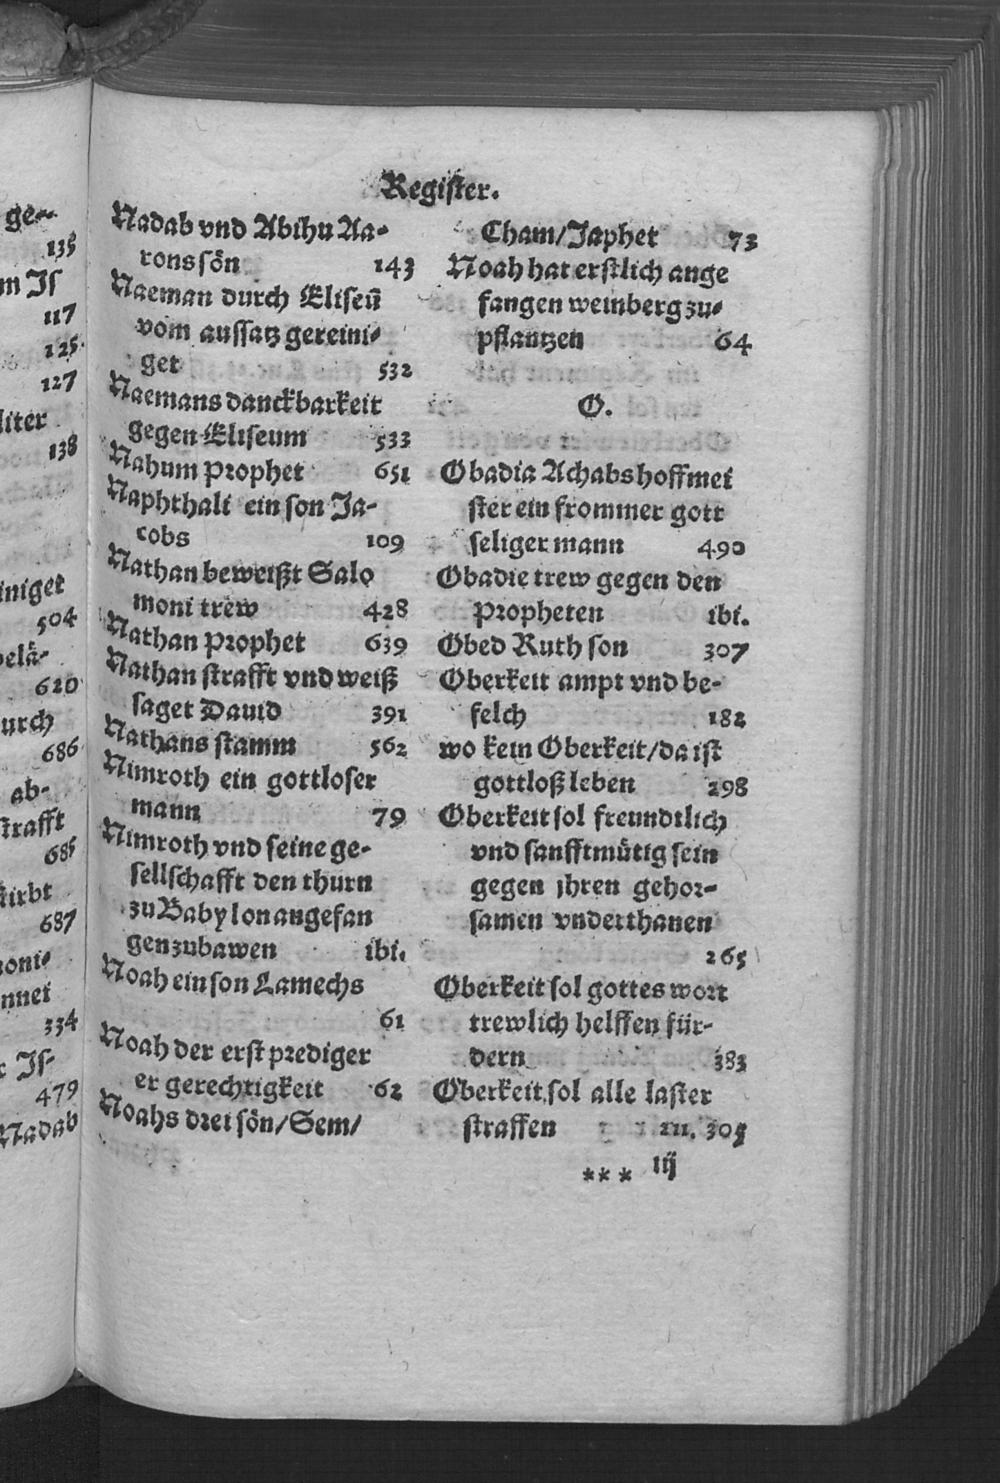 ge-
135
m Is
117
125.
127
liter
138
iniget
504
elä-
620
urch
686
ab-
strafft
685
stirbt
687
moni-
nnei
334
r Is-
479
Nadab
Register.
Nadab vnd Abihu Aa-
rons sön 143
Naeman durch Eliseū
vom aussatz gereini-
get 532
Naemans danckbarkeit
gegen Eliseum 533
Nahum Prophet 651
Naphthali ein son Ja-
cobs 109
Nathan beweißt Salo
moni trew 428
Nathan Prophet 639
Nathan strafft vnd weiß
saget Dauid 391
Nathans stamm 562
Nimroth ein gottloser
mann 79
Nimroth vnd seine ge-
sellschafft den thurn
zu Babylon angefan
gen zubawen ibi.
Noah ein son Lamechs
61
Noah der erst prediger
er gerechtigkeit 62
Noahs drei sön/Sem/
Cham/Japhet 73
Noah hat erstlich ange
fangen weinberg zu-
pflantzen 64
O.
Obadia Achabs hoffmei
ster ein frommer gott
seliger mann 490
Obadie trew gegen den
Propheten ibi.
Obed Ruth son 307
Oberkeit ampt vnd be-
felch 182
wo kein Oberkeit/da ist
gottloß leben 298
Oberkeit sol freundtlich
vnd sanfftmütig sein
gegen jhren gehor-
samen vnderthanen
265
Oberkeit sol gottes wort
trewlich helffen für-
dern 383
Oberkeit sol alle laster
straffen 305
*** iij